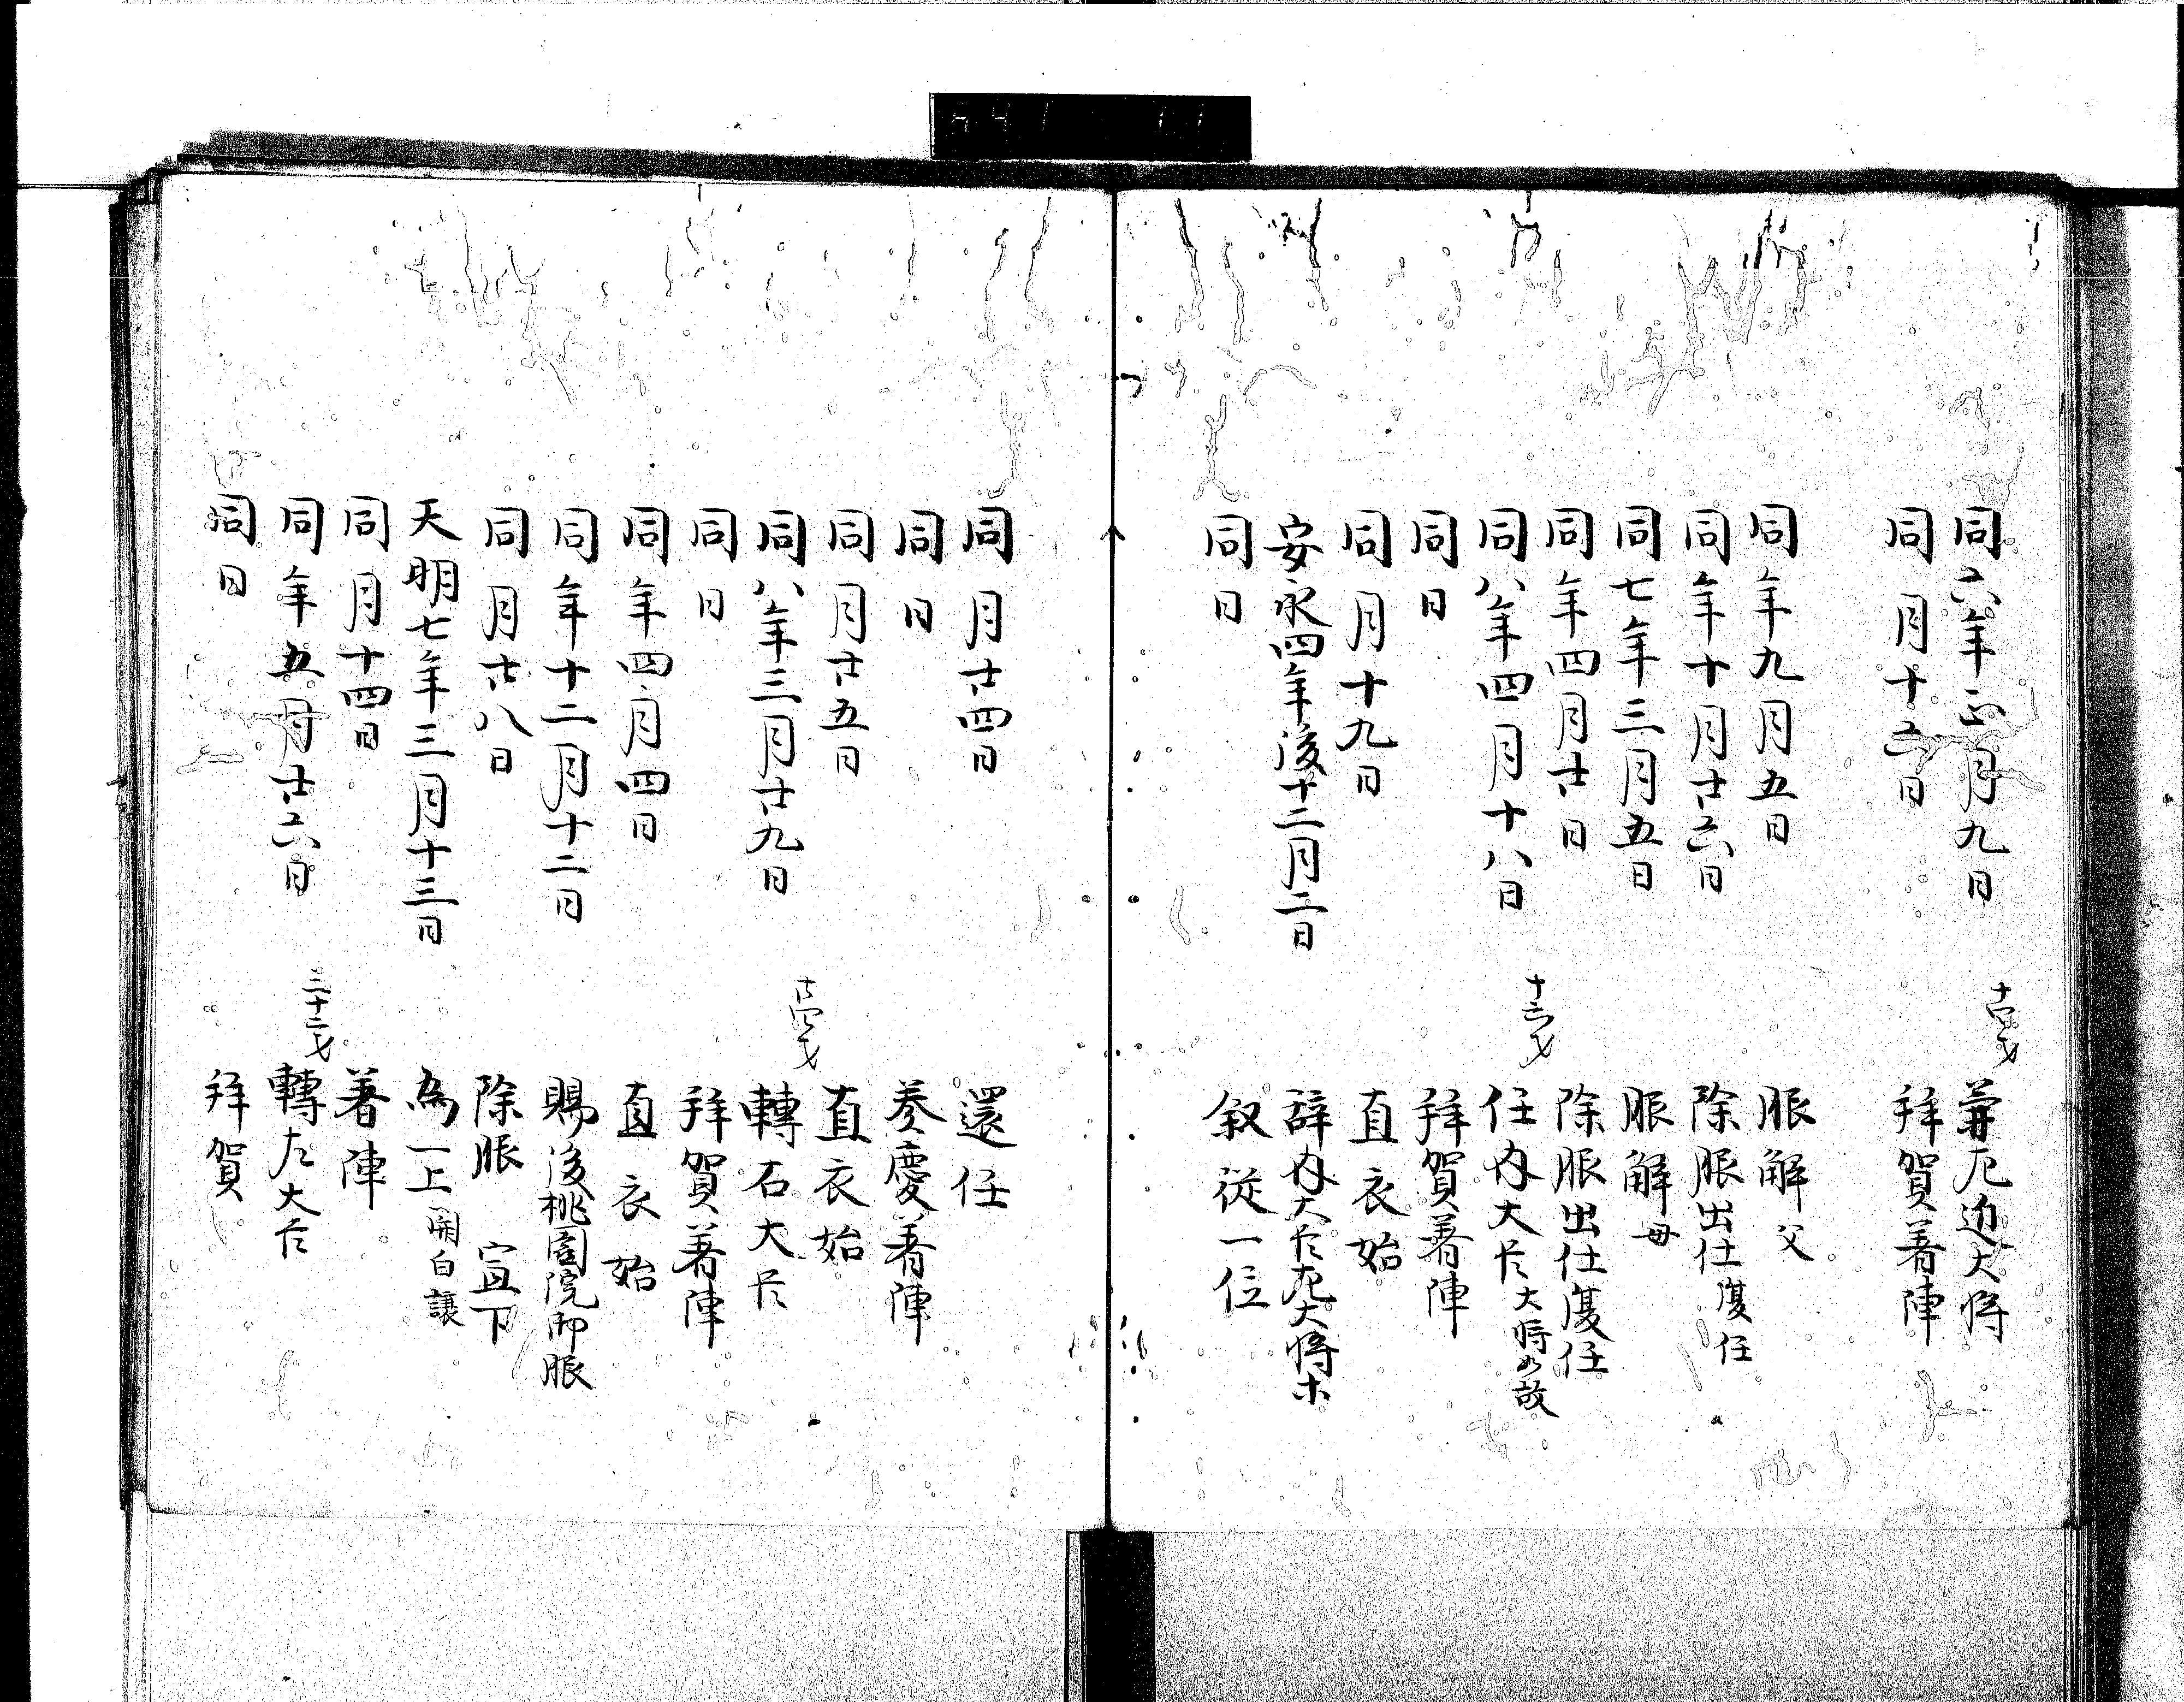 同六年正月九日 十四才 兼左近大将
同月十六日 拜賀着陣
同年九月五日 服解 父
同年十月廿六日 除服出仕 復任
同七年三月五日 服解 母
同年四月廿日 除服出仕復任
同八年四月十八日 十六才 任内大臣 大将如故
同日 拜賀着陣
同月十九日 直衣始
安永四年後十二月二日 辞内大臣左大将等
同日 叙従一位
同月廿四日 還任
同日 奏慶着陣
同月廿五日 直衣始
同八年三月廿九日 廿四才 轉右大臣
同日 拜賀着陣
同年四月四日 直衣始
同年十二月十二日 賜後桃園院御服
同月廿八日 除服 宣下
天明七年三月十三日 為一上 関白譲
同月十四日 着陣
同年五月廿六日 三十二才 轉左大臣
同日 拜賀